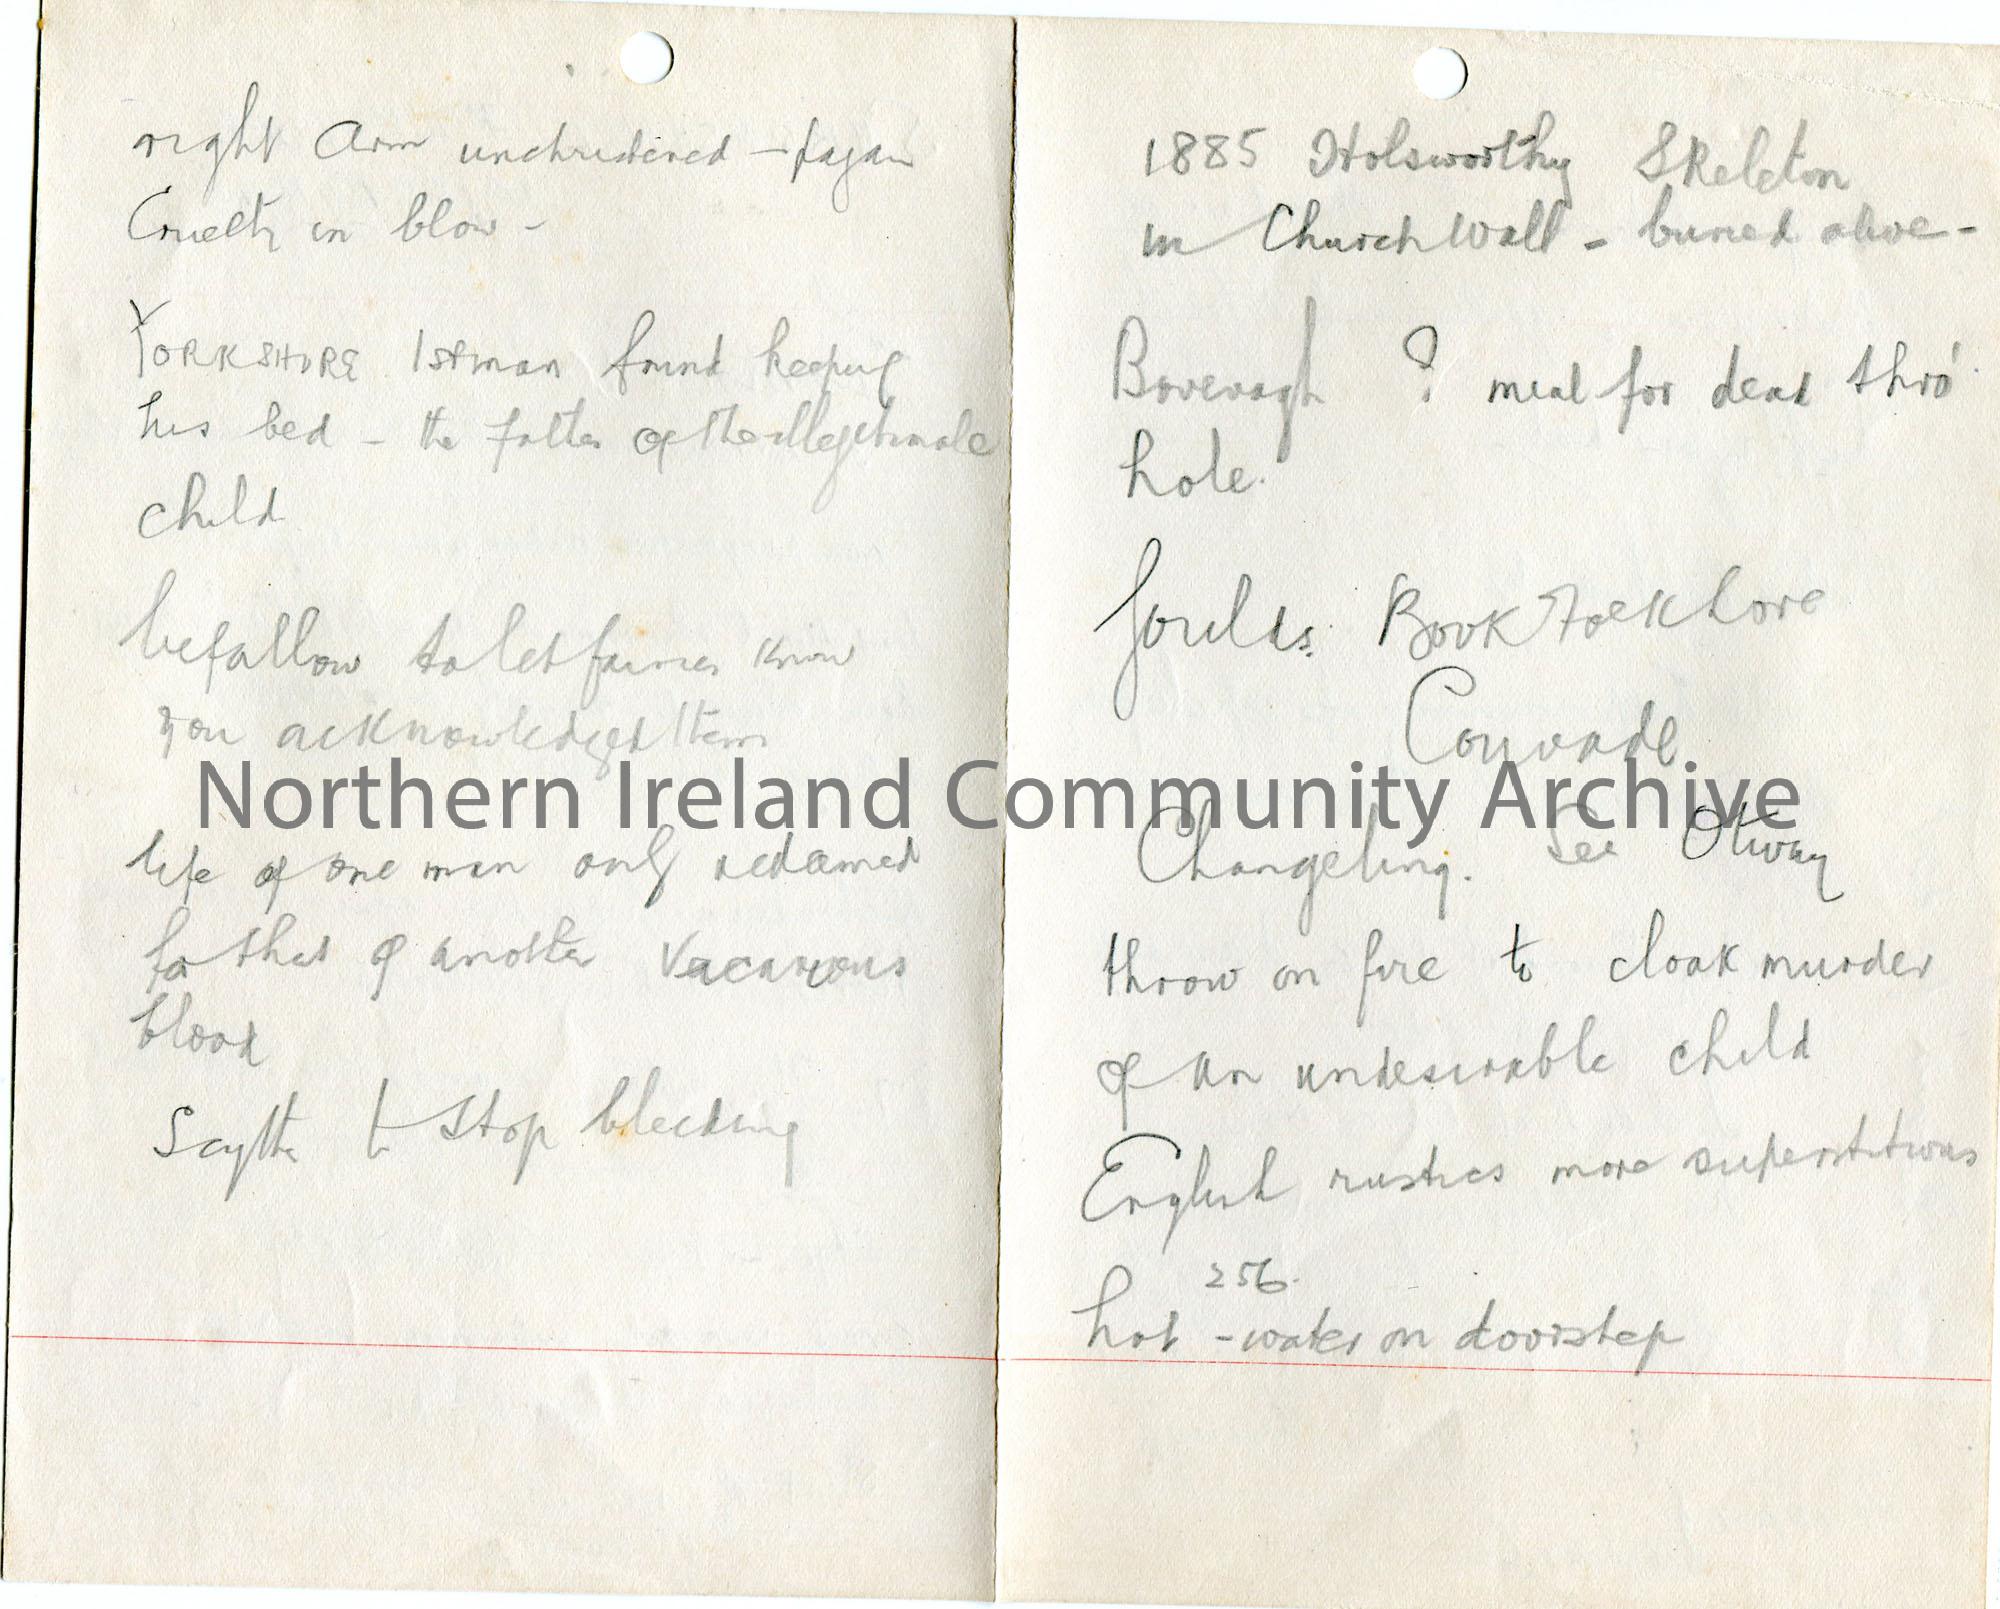 right Arm unchristened – pagan
Cruelty in blow –
YORKSHIRE 1st man found keeping
his bed – the father of the illegitimate
child
befallow to let fairies know
you acknowledged them
life of one man only redeemed
for that of another Vacarious
blood
Scythe to stop bleeding
1885 Holsworthy Skeleton
in Church Wall – buried alive –
Bovevagh ? meal for dead thro'
hole.
Goulds. Book Folk Lore
Couvade
Changeling. See Otway
throw on fire to cloak murder
of an undesirable child
English rustics more superstitious
256.
hot – water on doorstep
Northern Ireland Community Archive